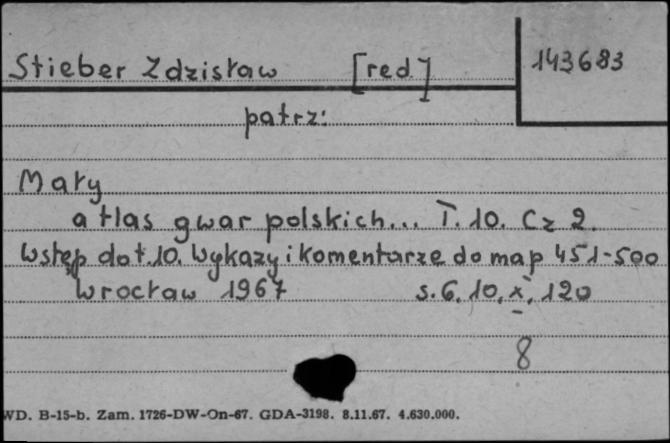 Stieber Zdzisław [red.] 143683
patrz:
Mały
atlas gwar polskich... T. 10. Cz 2.
Wstęp do t. 10. Wykazy i komentarze do map 451-500
Wrocław 1967 s. 6, 10, x, 120
8
WD. B-15-b. Zam. 1726-DW-On-67. GDA-3198. 8.11.67. 4.630.000.